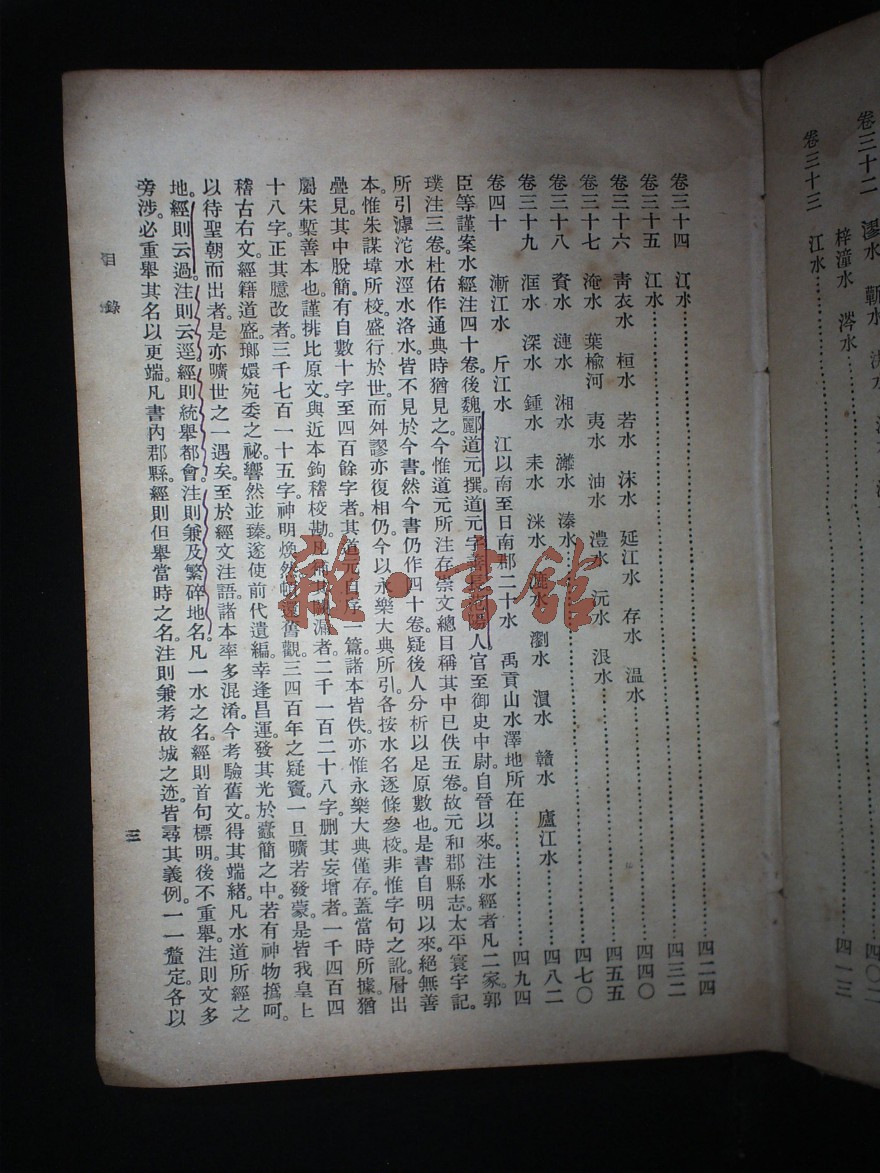 卷三十二 漻水 蘄水
梓潼水 涔水……四一三
卷三十三 江水……
卷三十四 江水……四二四
卷三十五 江水……四三二
卷三十六 青衣水 桓水 若水 沫水 延江水 存水 温水……四四〇
卷三十七 淹水 葉榆河 夷水 油水 澧水 沅水 泿水……四五五
卷三十八 資水 漣水 湘水 灕水 溱水……四七〇
卷三十九 洭水 深水 鍾水 耒水 洣水 漉水 瀏水 㵋水 贛水 廬江水……四八二
卷四十 漸江水 斤江水 江以南至日南郡二十水 禹貢山水澤地所在……四九四
臣等謹案水經注四十卷。後魏酈道元撰。道元字善長。范陽人。官至御史中尉。自晉以來。注水經者凡二家。郭
璞注三卷。杜佑作通典時猶見之。今惟道元所注存。崇文總目稱其中已佚五卷。故元和郡縣志太平寰宇記。
所引滹沱水涇水洛水。皆不見於今書。然今書仍作四十卷。疑後人分析以足原數也。是書自明以來。絕無善
本。惟朱謀㙔所校。盛行於世。而舛謬亦復相仍。今以永樂大典所引。各按水名。逐條參校。非惟字句之訛。層出
疊見。其中脫簡。有自數十字至四百餘字者。其道元自序一篇。諸本皆佚。亦惟永樂大典僅存。蓋當時所據。猶
屬宋槧善本也。謹排比原文。與近本鉤稽校勘。凡補其闕漏者。二千一百二十八字。删其妄增者。一千四百四
十八字。正其臆改者。三千七百一十五字。神明煥然。頓還舊觀。三四百年之疑竇。一旦曠若發蒙。是皆我皇上
稽古右文。經籍道盛。瑯嬛宛委之祕。響然並臻。遂使前代遺編。幸逢昌運。發其光於蠹簡之中。若有神物撝呵。
以待聖朝而出者。是亦曠世之一遇矣。至於經文注語。諸本率多混淆。今考驗舊文。得其端緒。凡水道所經之
地。經則云過。注則云逕。經則統舉都會。注則兼及繁碎地名。凡一水之名。經則首句標明。後不重舉。注則文多
旁涉。必重舉其名以更端。凡書內郡縣。經則但舉當時之名。注則兼考故城之迹。皆尋其義例。一一釐定。各以
目錄
三
雜·書館